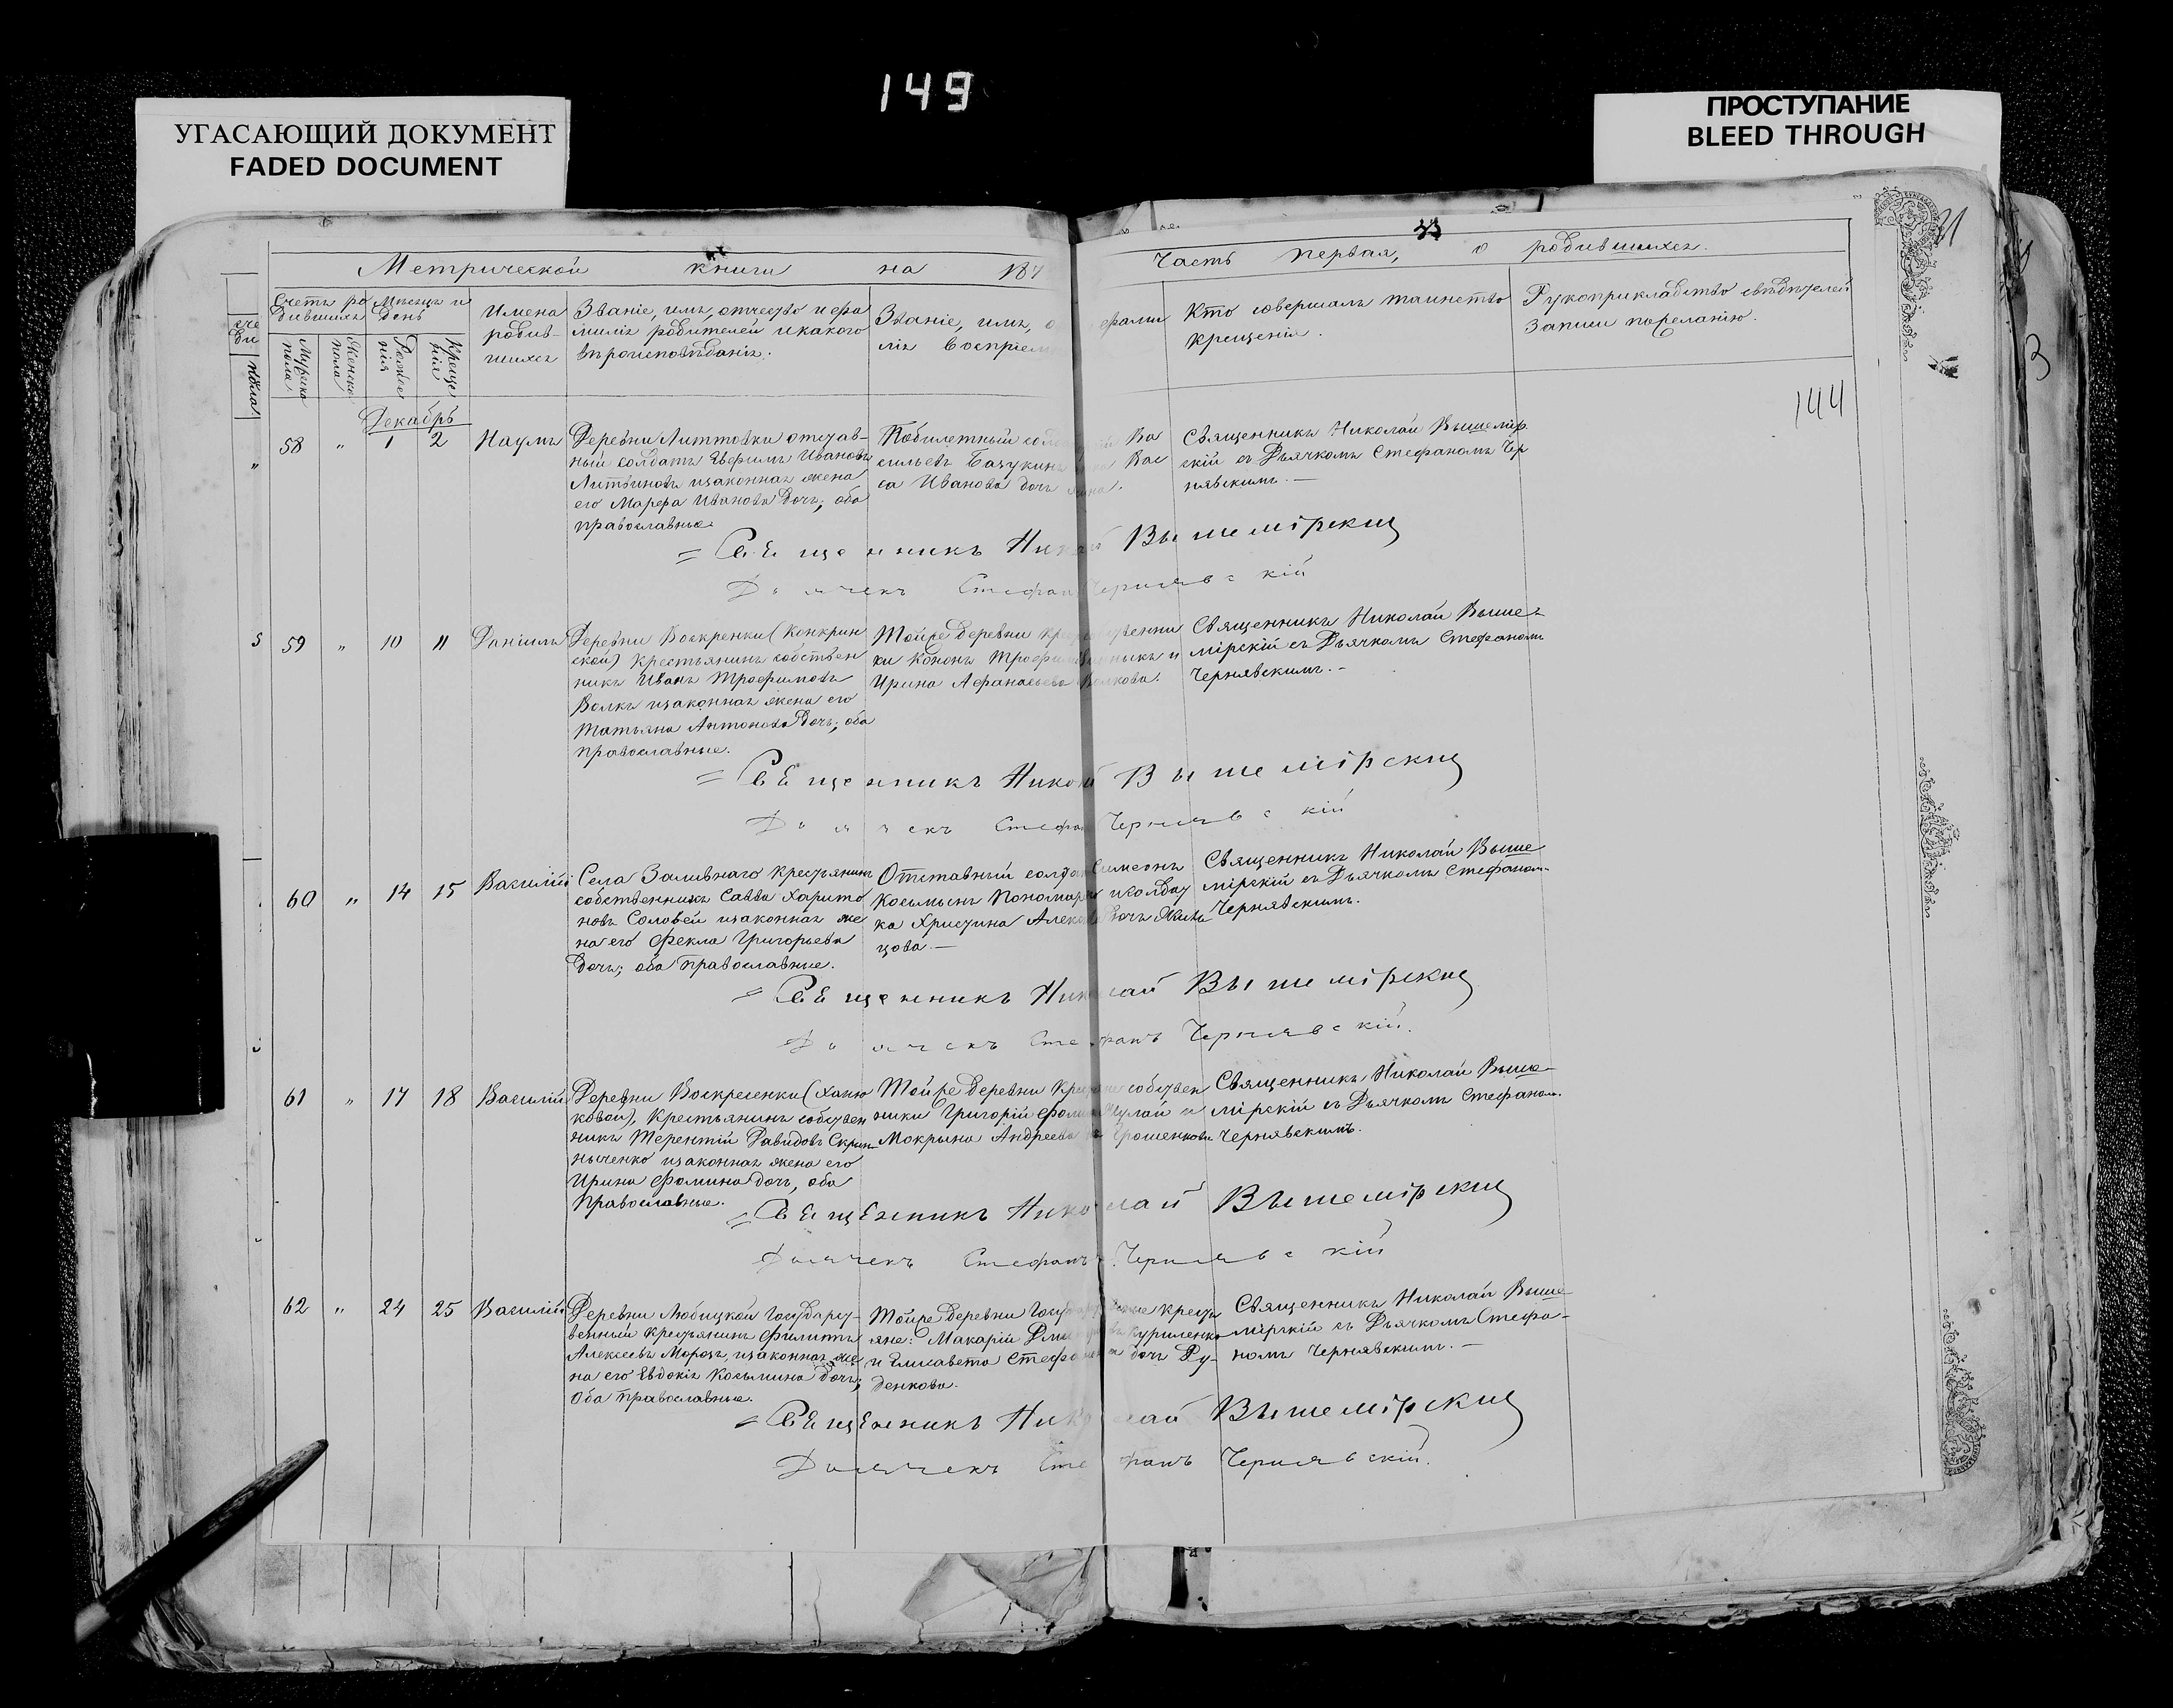 149
УГАСАЮЩИЙ ДОКУМЕНТ
FADED DOCUMENT
ПРОСТУПАНИЕ
BLEED THROUGH
Метрической книги на 187
Часть первая, о родившихся.
Счетъ ро
дившихся
Мѣсяцъ и
день
Мужска
пола
Женска
пола
Рожде
нія
Креще
нія
Имена
родив-
шихся
Званіе, имя, отчество и фа
милія родителей и какого
вѣроисповѣданія.
Званіе, имя, о
фами
лія воспріем
Кто совершалъ таинство
крещенія.
Рукоприкладство свидѣтелей
записи по желанію.
144
Декабрь
58 " 1 2 Наумъ
Деревни Литтовки отстав-
ный солдатъ Евфимъ Ивановъ
Литвиновъ и законная жена
его Марфа Иванова дочь; оба
православные.
Побилетный Ва
сильевъ Вас
са Иванова дочь
Священникъ Николай Вышемір
скій съ Дьячкомъ Стефаномъ Чер
нявскимъ.—
= Священникъ Николай Вышемірскій
Дьячекъ Стефан Чернявскій
59 " 10 11 Даніилъ
Деревни Воскренки (Конкрин
ской) крестьянинъ собствен
никъ Иванъ Трофимовъ
Волкъ и законная жена его
Татьяна Антонова дочь; оба
православные.
Тойже деревни
ки Кононъ и
Ирина Афанасьева Волкова.
Священникъ Николай Выше-
мірскій съ Дьячкомъ Стефаномъ
Чернявскимъ.—
= Священникъ Николай Вышемірскій
Дьячекъ Стефан Чернявскій
60 " 14 15 Василій
Села Заливнаго крестьянинъ
собственникъ Савва Харито
новъ Соловей и законная же
на его Фекла Григорьева
дочь; оба православные.
Отставный солдат Симеонъ
Косьминъ Пономар и солдат
ка Христина Алекс дочь
цова.—
Священникъ Николай Выше
мірскій съ Дьячкомъ Стефаном-
Чернявскимъ.
= Священникъ Николай Вышемірскій
Дьячекъ Стефанъ Чернявскій.
61 " 17 18 Василій
Деревни Воскресенки (Ханю
ковой), крестьянинъ собствен
никъ Терентій Давидовъ Скрын
ныченко и законная жена его
Ирина Фомина дочь, оба
православные.
Тойже деревни собствен
ники Григорій и
Мокрына Андреева
Священникъ Николай Выше-
мірскій съ Дьячкомъ Стефаном.
Чернявскимъ.
= Священникъ Николай Вышемірскій
Дьячекъ Стефанъ Чернявскій
62 " 24 25 Василій
Деревни Любицкой Государст-
венный крестьянинъ Филиппъ
Алексеевъ Морозъ, и законная же
на его Евдокія Косьмина дочь;
оба православные.
Тойже деревни кресть
яне: Макарій Куриленко
и Елисавета Стефанова дочь Ру-
денкова.
Священникъ Николай Выше
мірскій съ Дьячкомъ Стефа-
номъ Чернявскимъ.—
= Священникъ Николай Вышемірскій
Дьячекъ Стефанъ Чернявскій.